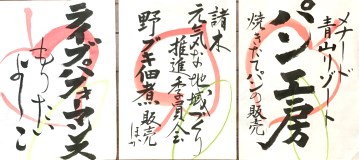 メナード
青山リゾート
パン工房
焼きたてパンの販売
諸木
元気な地域づくり
推進委員会
野ブキ佃煮
販売
ほか
ライブパフォーマンス
もりたい
よしこ